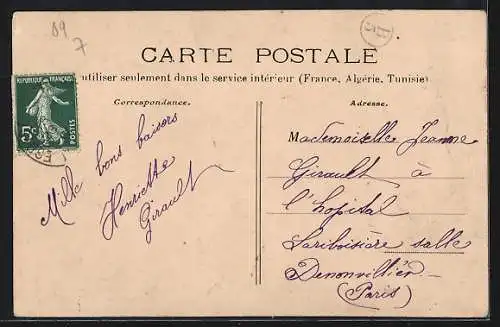 89
7
CARTE POSTALE
utiliser seulement dans le service intérieur (France, Algérie, Tunisie)
Correspondance.
Adresse.
REPUBLIQUE FRANÇAISE
5c
POSTES
Mille bons baisers
Henriette
Girault
Mademoiselle Jeanne
Girault à
l'hopital
Lariboisière salle
Denonvillier
(Paris)